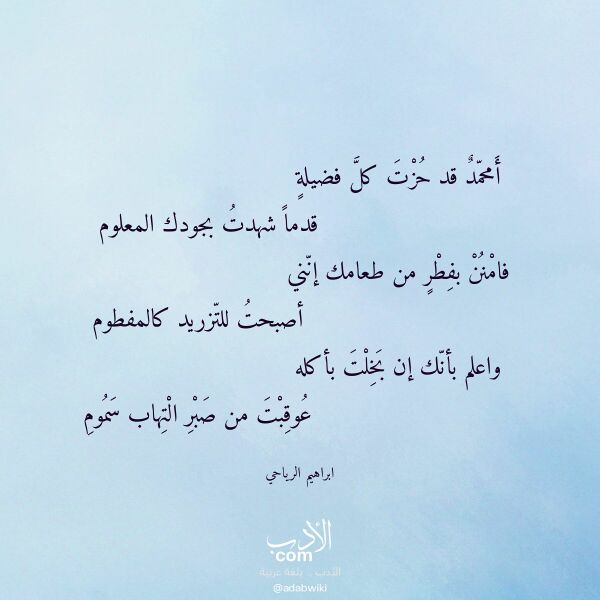 أَمحمّدٌ قد حُزْتَ كلَّ فضيلةٍ
قدماً شهدتُ بجودك المعلوم
فامْنُنْ بفِطْرٍ من طعامك إنّني
أصبحتُ للتّزريد كالمفطوم
واعلم بأنّك إن بَخِلْتَ بأكله
عُوقِبْتَ من صَبْرِ الْتِهاب سَمُومِ
ابراهيم الرياحي
الأدب
com
الأدب .. بلغة عربية
@adabwiki